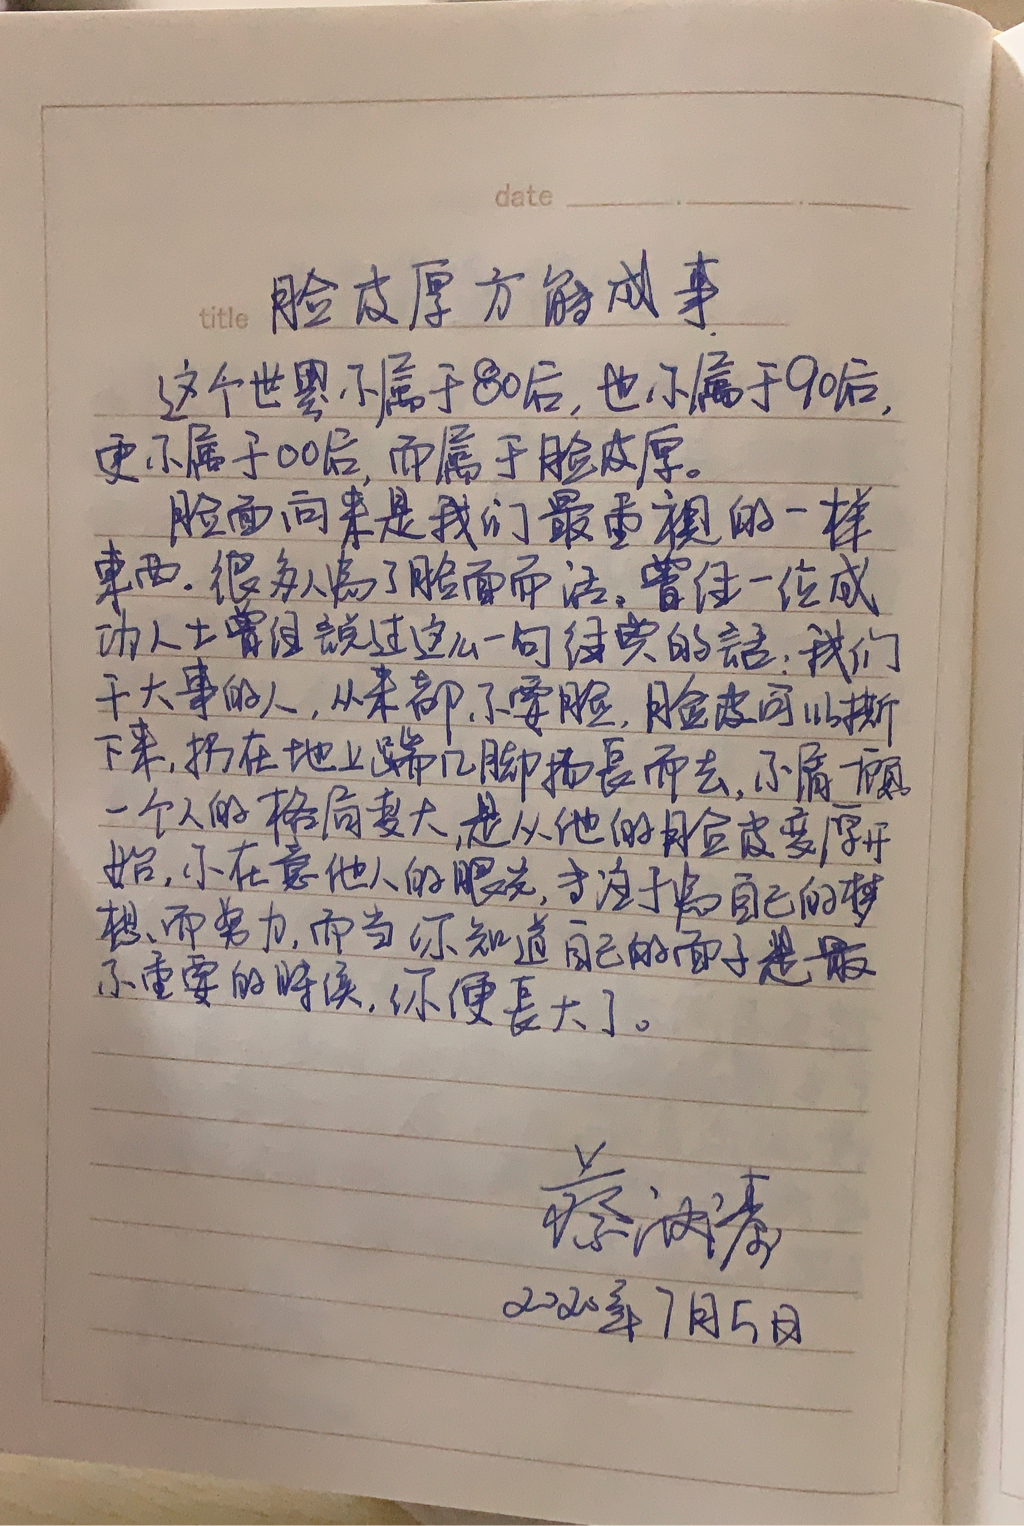 date
title 脸皮厚方能成事
这个世界不属于80后,也不属于90后,
更不属于00后,而属于脸皮厚。
脸面向来是我们最重視的一样
東西.很多人為了脸面而活。曾经一位成
功人士曾经説过这么一句经典的話:我们
干大事的人,从来都不要脸,脸皮可以撕
下来,扔在地上踹几脚揚長而去,不屑一顧
一个人的格局变大,是从他的脸皮变厚开
始,不在意他人的眼光,专注于為自己的梦
想、而努力,而当你知道自己的面子是最
不重要的時候,你便長大了。
蔡
2020年7月5日